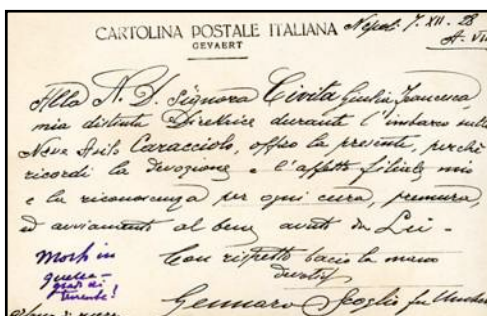 CARTOLINA POSTALE ITALIANA Napoli 7. XII. 28
GEVAERT A. VII
Alla N. D. Signora Civita Giulia Francesca,
mia distinta Direttrice durante l'imbarco sulla
Nave Asilo Caracciolo, offro la presente, perchè
ricordi la devozione e l'affetto filiale mio
e la riconoscenza per ogni cura, premura,
ed avviamento al bene avuti da Lei -
Con rispetto bacio la mano
Morti in
guerra
tenente!
Gennaro Scoglio fu